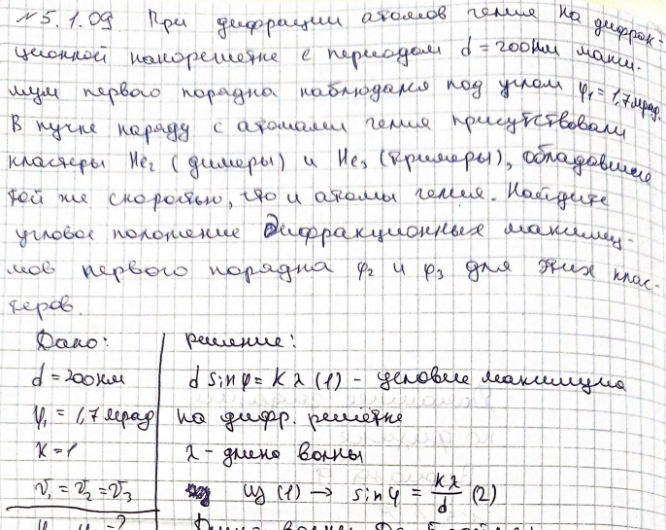 №5.1.09 При дифракции атомов гелия на дифрак-
ционной нанорешетке с периодом d = 200нм макси-
мум первого порядка наблюдался под углом φ₁ = 1,7мрад.
В пучке наряду с атомами гелия присутствовали
кластеры He₂ (димеры) и He₃ (тримеры), обладавшие
той же скоростью, что и атомы гелия. Найдите
угловое положение дифракционных максиму-
мов первого порядка φ₂ и φ₃ для этих клас-
теров.
Дано: Решение:
d = 200нм d sinφ = Kλ (1) - условие максимума
φ₁ = 1,7мрад на дифр. решетке
K = 1 λ - длина волны
v₁ = v₂ = v₃ из (1) → sinφ = Kλ/d (2)